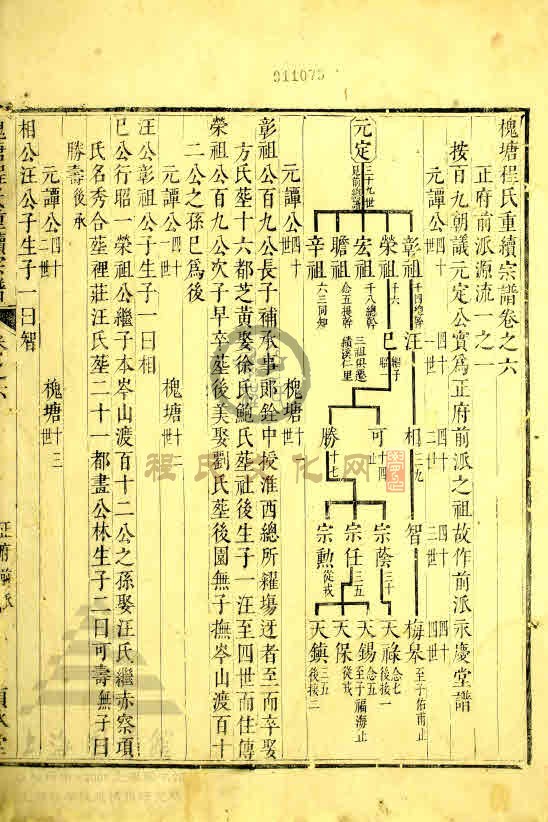 911075
槐塘程氏重續宗譜卷之六
正府前派源流一之一
按百九朝議元定公實爲正府前派之祖故作前派永慶堂譜
元譚公四十世 四十一世 四十二世 四十三世 四十四世
元定 三十九世見前總譜
彰祖 千四總幹 汪 相 三九 智 梅皋 至子佑甫止
榮祖 千六 巳 繼子 可 十四止 宗蔭 三十 天祿 念七後接一
宏祖 千八總幹 三祖俱遷績溪仁里 勝 十七 宗任 三五 天錫 念五至子福海止
瞻祖 念五提幹 宗勲 從戎 天保 從戎
辛祖 六三同知 天鎮 三五後接二
元譚公四十世 槐塘十一世
彰祖公百九公長子補承事郎銓中授淮西總所糴塲迓者至而卒娶
方氏塟十六都芝黃娶徐氏鮑氏塟社後生子一汪至四世而住傳
榮祖公百九公次子早卒塟後美娶劉氏塟後園無子撫岑山渡百十
二公之孫巳爲後
元譚公四十一世 槐塘十二世
汪公彰祖公子生子一曰相
巳公行昭一榮祖公繼子本岑山渡百十二公之孫娶汪氏繼赤察項
氏名秀合塟裡莊汪氏塟二十一都畫公林生子二曰可壽無子曰
勝壽後承
元譚公四十二世 槐塘十三世
相公汪公子生子一曰智
槐塘程氏重續宗譜 卷之六 正府前派
程氏文化网